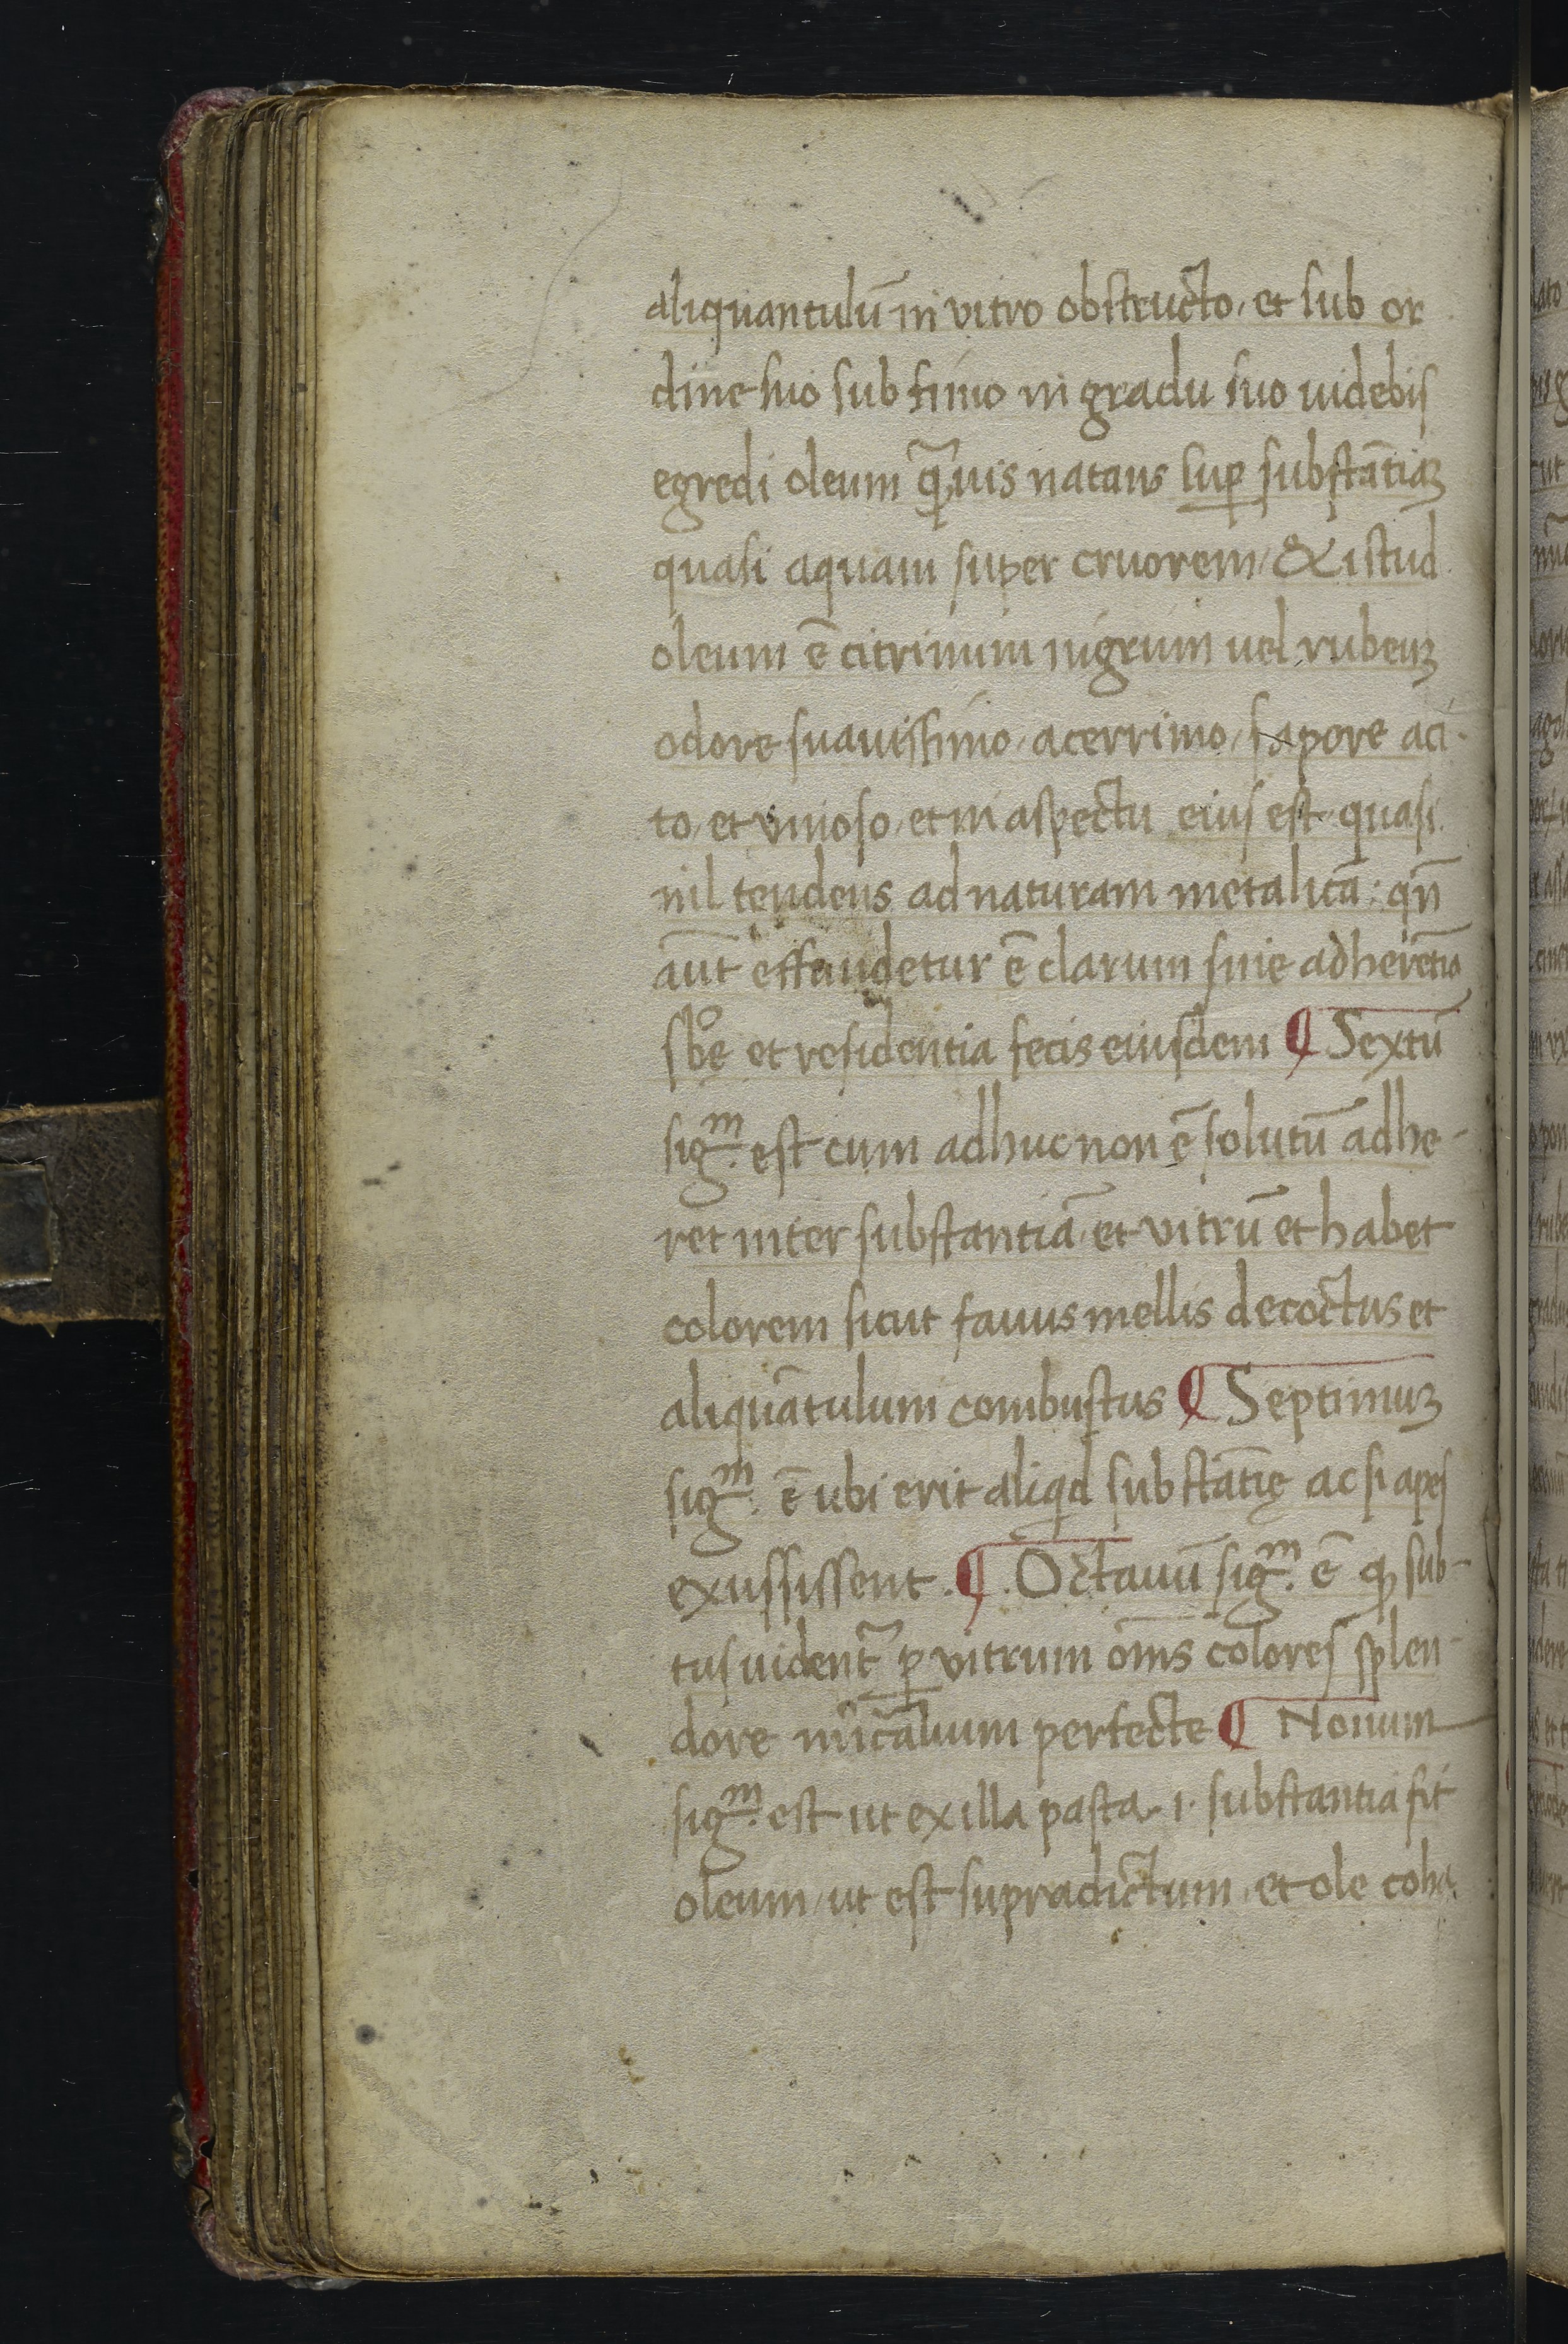 aliquantulū in vitro obstructo, et sub or
dine suo sub fimo in gradu suo uidebis
egredi oleum q̄uis natans suꝑ substātiaꝫ
quasi aquam super cruorem, & istud
oleum ē citrinum nigrum uel rubeuꝫ
odore suauissimo, acerrimo, sapore aci-
to, et vnioso, et in aspectu eius est quasi
nil tendens ad naturam metalicā: qn̄
aūt effundetur ē clarum sine adherētia
sbe et residentia fecis eiusdem ¶ Sextū
sigᵐ. est cum adhuc non ē solutū adhe-
ret inter substantiā, et vitrū et habet
colorem sicut fauus mellis decoctus et
aliquātulum combustus ¶ Septimuꝫ
sigᵐ. ē ubi erit aliqd substātię ac si apes
exussissent. ¶. Octauū sigᵐ. ē ꝙ sub-
tus uident̄ ꝑ vitrum om̄s colores splen-
dore perfecte ¶ Nonum
sigᵐ. est ut ex illa pasta .i. substantia fit
oleum, ut est supradictum, et ole